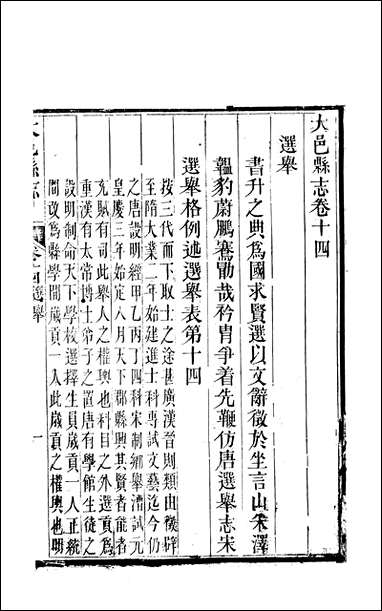 大邑縣志卷十四
選舉
書升之典爲國求賢選以文辭徵於坐言山釆澤
韞豹蔚鵬騫勖哉衿胄爭着先鞭仿唐選舉志宋
選舉格例述選舉表第十四
按三代而下取士之途甚廣漢晉則類由辟
至隋大業二年始建進士科專試文藝迄今仍
之唐設明經甲乙丙丁四科宋制鄉舉漕試元
皇慶三年始定八月天下郡縣興其賢者能者
充賦有司此舉人之權輿也科目之外選貢爲
重漢有太常博士弟子之置唐有學館生徒之
設明制命天下學校選擇生員歲貢一人正統
間改爲縣學間歲貢一人此歲貢之權輿也明
大邑縣志
卷十四選舉
一